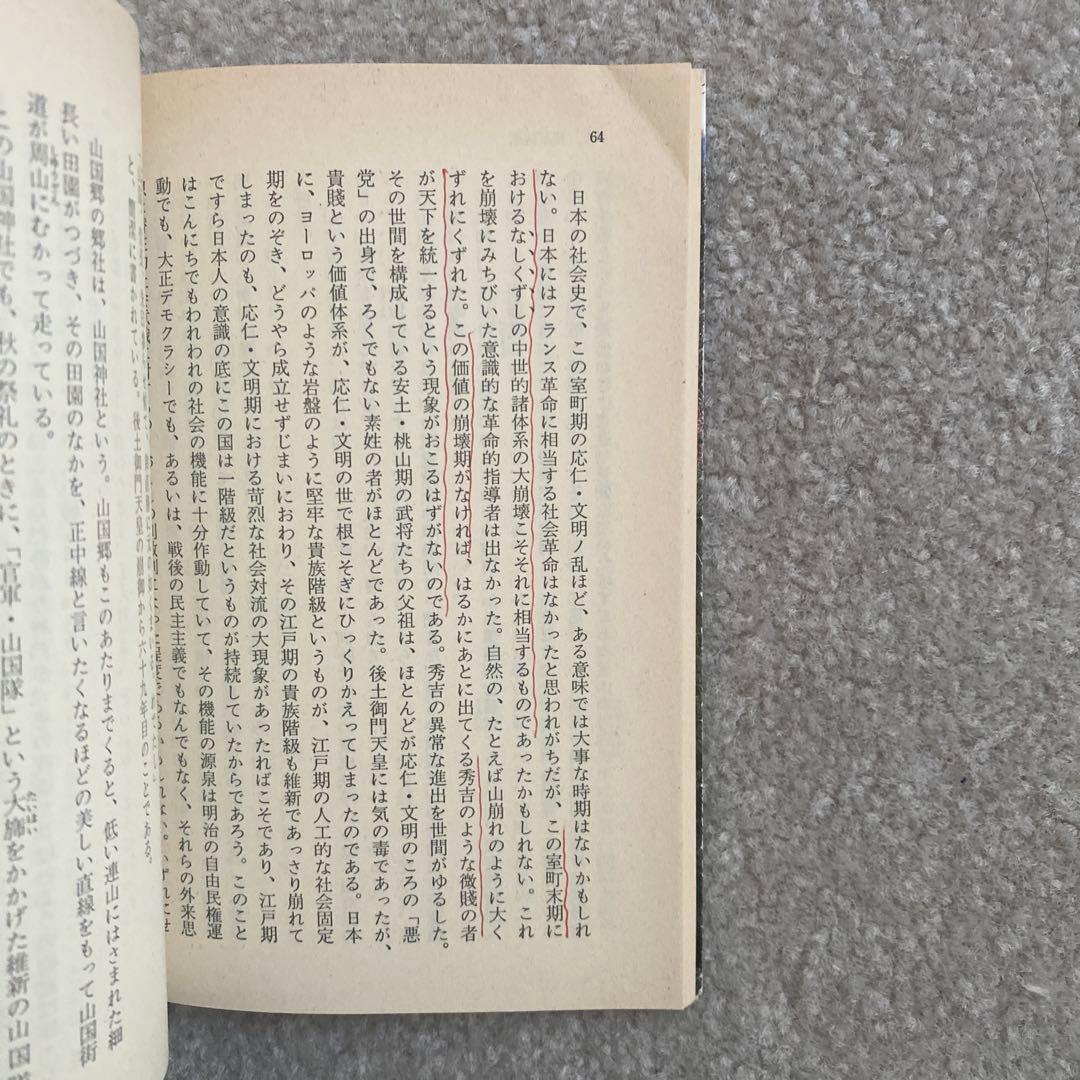 64
日本の社会史で、この室町期の応仁・文明ノ乱ほど、ある意味では大事な時期はないかもしれ
ない。日本にはフランス革命に相当する社会革命はなかったと思われがちだが、この室町末期に
おけるなしくずしの中世的諸体系の大崩壊こそそれに相当するものであったかもしれない。これ
を崩壊にみちびいた意識的な革命的指導者は出なかった。自然の、たとえば山崩れのように大く
ずれにくずれた。この価値の崩壊期がなければ、はるかにあとに出てくる秀吉のような微賤の者
が天下を統一するという現象がおこるはずがないのである。秀吉の異常な進出を世間がゆるした。
その世間を構成している安土・桃山期の武将たちの父祖は、ほとんどが応仁・文明のころの「悪
党」の出身で、ろくでもない素姓の者がほとんどであった。後土御門天皇には気の毒であったが、
貴賤という価値体系が、応仁・文明の世で根こそぎにひっくりかえってしまったのである。日本
に、ヨーロッパのような岩盤のように堅牢な貴族階級というものが、江戸期の人工的な社会固定
期をのぞき、どうやら成立せずじまいにおわり、その江戸期の貴族階級も維新であっさり崩れて
しまったのも、応仁・文明期における苛烈な社会対流の大現象があったればこそであり、江戸期
ですら日本人の意識の底にこの国は一階級だというものが持続していたからであろう。このこと
はこんにちでもわれわれの社会の機能に十分作動していて、その機能の源泉は明治の自由民権運
動でも、大正デモクラシーでも、あるいは、戦後の民主主義でもなんでもなく、それらの外来思
と、簡潔に書かれている。後土御門天皇の崩御から六十九年目のことである。
山国郷の郷社は、山国神社という。山国郷もこのあたりまでくると、低い連山にはさまれた細
長い田園がつづき、その田園のなかを、正中線と言いたくなるほどの美しい直線をもって山国街
道が周山にむかって走っている。
この山国神社でも、秋の祭礼のときに、「官軍・山国隊」という大旆をかかげた維新の山国隊